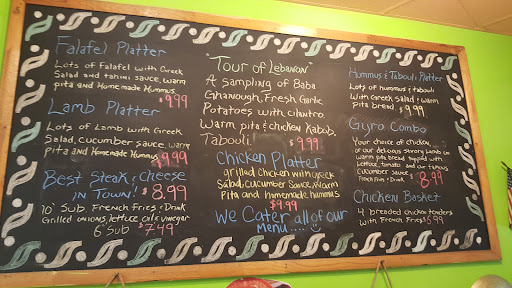 Falafel Platter
Lots of Falafel with Greek
Salad and tahini sauce, warm
pita and Homemade Hummus.
$9.99
Lamb Platter
Lots of Lamb with Greek
Salad, cucumber sauce, warm
pita and Homemade Hummus
$9.99
Best Steak & Cheese
in Town! $8.99
10" Sub French Fries & Drink
Grilled onions, lettuce oil & vinegar
6" Sub $7.49
"Tour of Lebanon"
A sampling of Baba
Ghanough, Fresh Garlic
Potatoes with cilantro
Warm pita & chicken Kabob,
Tabouli.
$9.99
Chicken Platter
grilled Chicken with greek
Salad, Cucumber Sauce, Warm
Pita and homemade hummus
$9.99
We Cater all of our
menu....
Hummus & Tabouli Platter
Lots of hummus & tabouli
With Greek salad & warm
pita bread $9.99
Gyro Combo
Your choice of chicken
or our delicious savory Lamb on
warm pita bread topped with
Lettuce, tomato and our famous
Cucumber sauce
French Fries & Drink $8.99
Chicken Basket
4 breaded chicken tenders
with French Fries $6.99